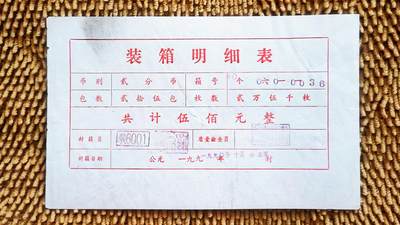 装箱明细表
币别 贰分币 箱号 个 060-0036
包数 贰拾伍包 枚数 贰万伍千枚
共计伍佰元整
封箱员 6001 质量检查员
封箱日期 公元一九九 年 封